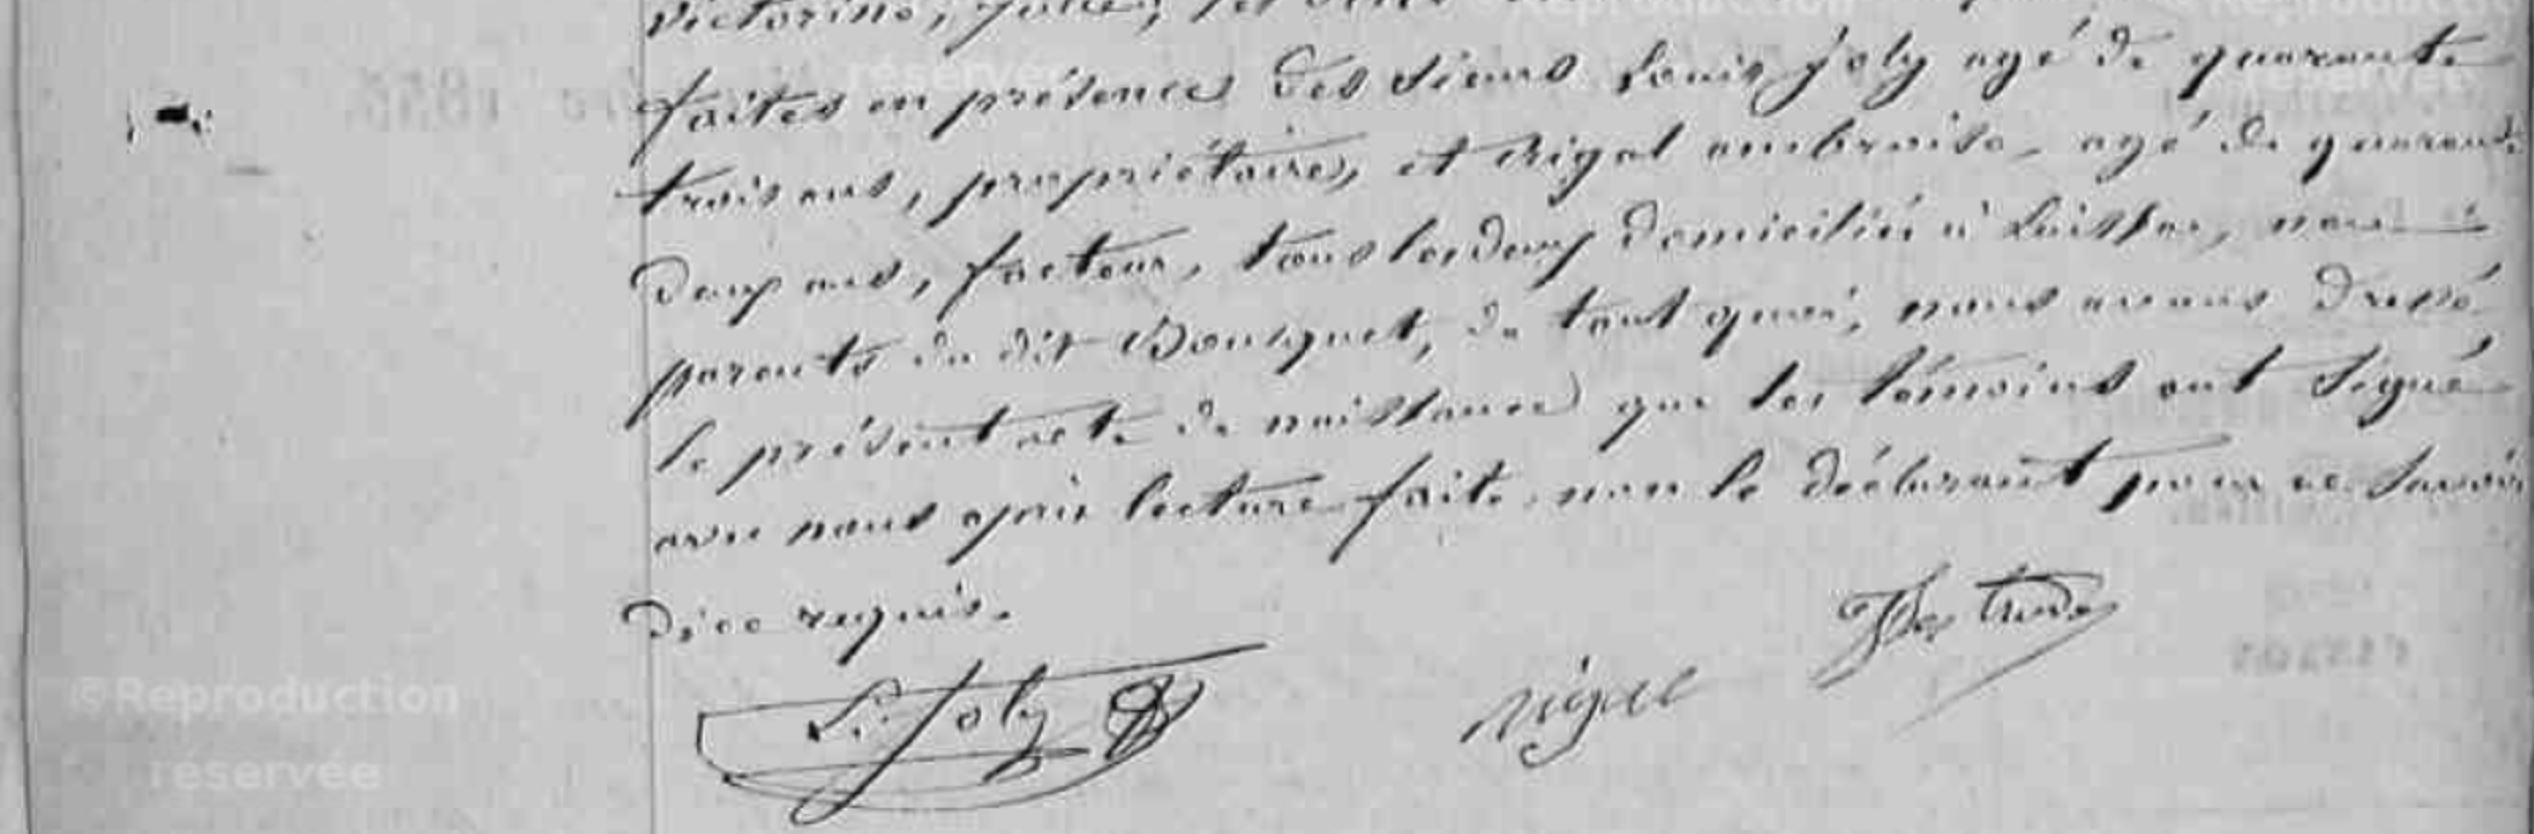 Victorine, Julie,
faites en présence des sieurs Louis Joly agé de quarante
trois ans, propriétaire, et Rigal ambroise agé de quarante
deux ans, facteur, tous les deux domiciliés à Laissac, non
parents du dit Bousquet, de tout quoi, nous avons dressé
le présent acte de naissance que les témoins ont signé
avec nous après lecture faite non le déclarant pour ne savoir
dice requis.
L. Joly
Rigal
©Reproduction
réservée